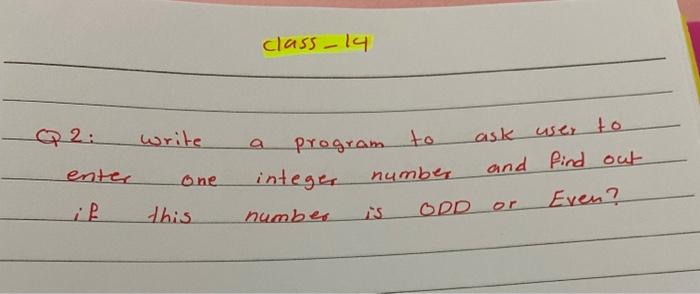 class - 14
Q2: write a program to ask user to
enter one integer number and find out
if this number is ODD or Even?